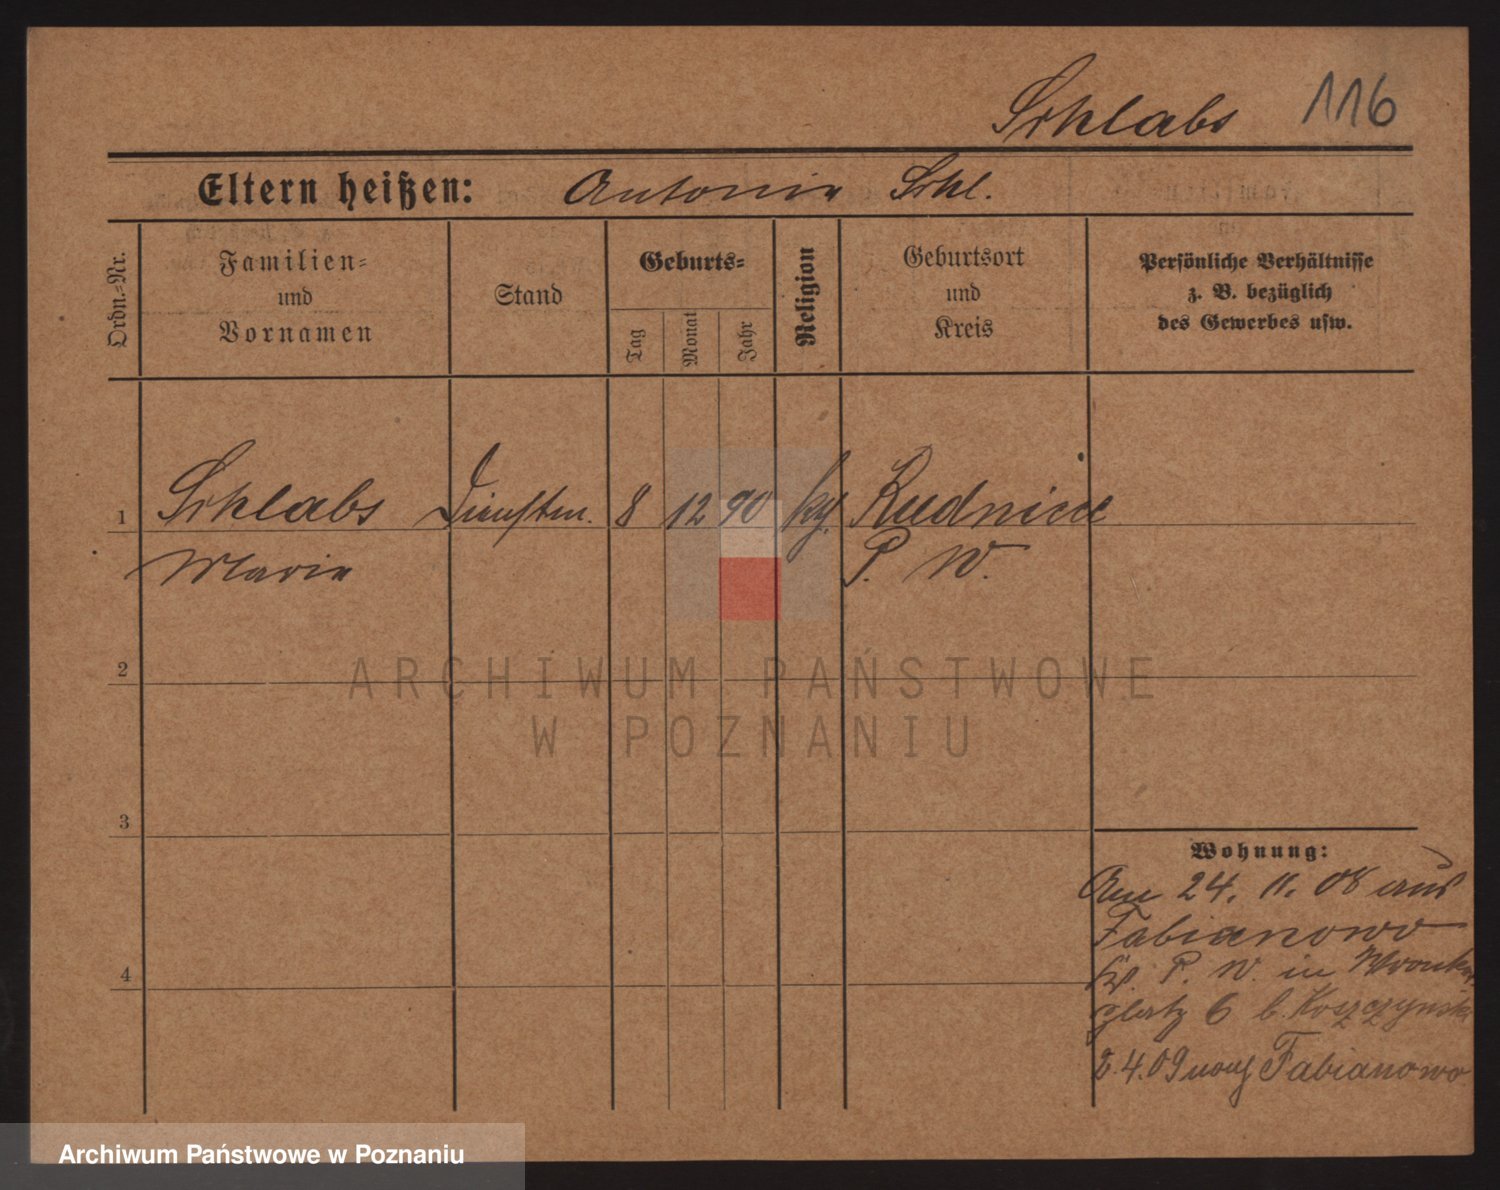 Schlabs 116
Eltern heißen: Antonie Schl.
Ordn.-Nr.
Familien-
und
Vornamen
Stand
Geburts-
Tag
Monat
Jahr
Religion
Geburtsort
und
Kreis
Persönliche Verhältnisse
z. B. bezüglich
des Gewerbes usw.
1 Schlabs Dienstm. 8 12 90 kg. Rudnicze
Marie P. W.
2
3
4
Wohnung:
Am 24. 11. 08 aus
Fabianowo
Kr. P. W. in Wronker
platz 6 b. Koszczynski
2.4.09 nach Fabianowo
ARCHIWUM PAŃSTWOWE
W POZNANIU
Archiwum Państwowe w Poznaniu